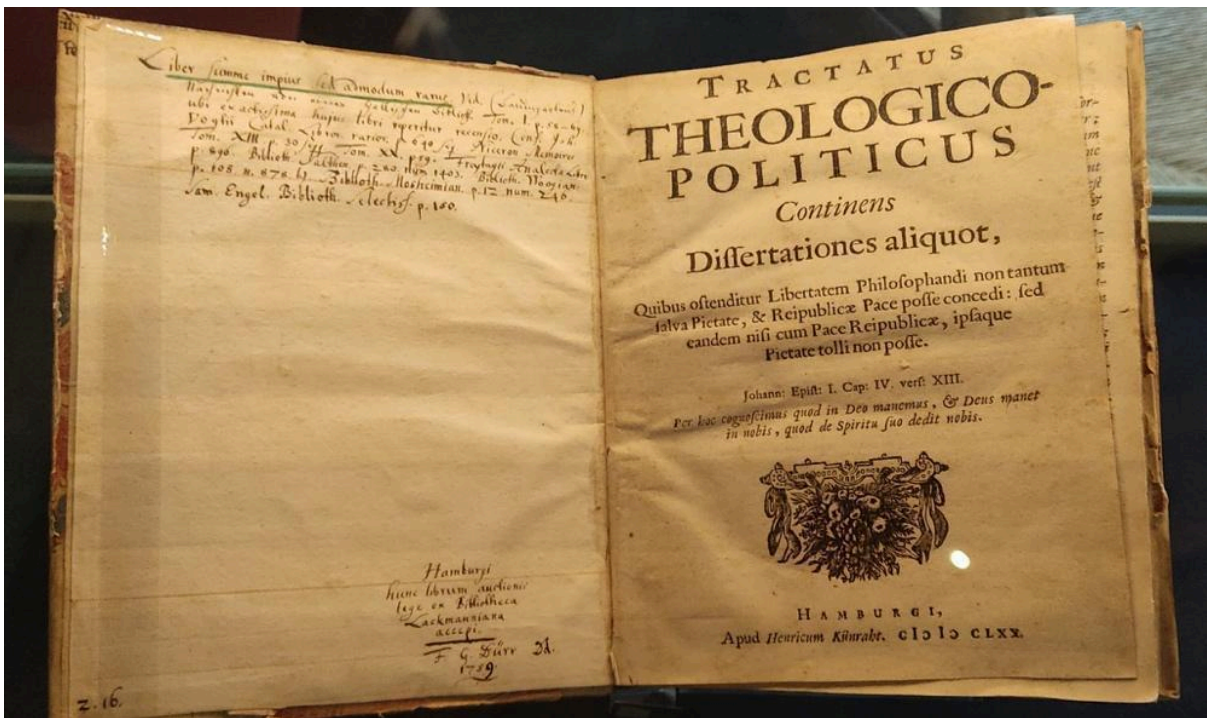 Liber summe impius sed admodum rarus Vid. (Baumgartens)
Nachrichten von einer Hallischen Biblioth. Tom. I. p. 58-69.
ubi exactissima hujus libri reperitur recensio. Conf. Joh.
Vogtii Catal. Libror. rarior. p. 640 sq. Niceron Memoires
Tom. XIII p. 30 Tom. XX. p. 59. Freytagii Analecta Litter.
p. 890. Biblioth. Salthen. p. 280. num 1403. Biblioth. Woogian.
p. 108. n. 878. Biblioth. Mosheimian. p. 12. num. 246.
Sam. Engel. Biblioth. selectiss. p. 150.
Hamburgi
hunc librum auctionis
lege ex Bibliotheca
Lackmanniana
accepi.
F. G. Dürr
1759
z. 16.
TRACTATUS
THEOLOGICO-
POLITICUS
Continens
Dissertationes aliquot,
Quibus ostenditur Libertatem Philosophandi non tantum
salva Pietate, & Reipublicæ Pace posse concedi: sed
eandem nisi cum Pace Reipublicæ, ipsaque
Pietate tolli non posse.
Johann: Epist: I. Cap: IV. vers: XIII.
Per hoc cognoscimus quod in Deo manemus, & Deus manet
in nobis, quod de Spiritu suo dedit nobis.
HAMBURGI,
Apud Henricum Künraht. cIɔ Iɔ CLXX.